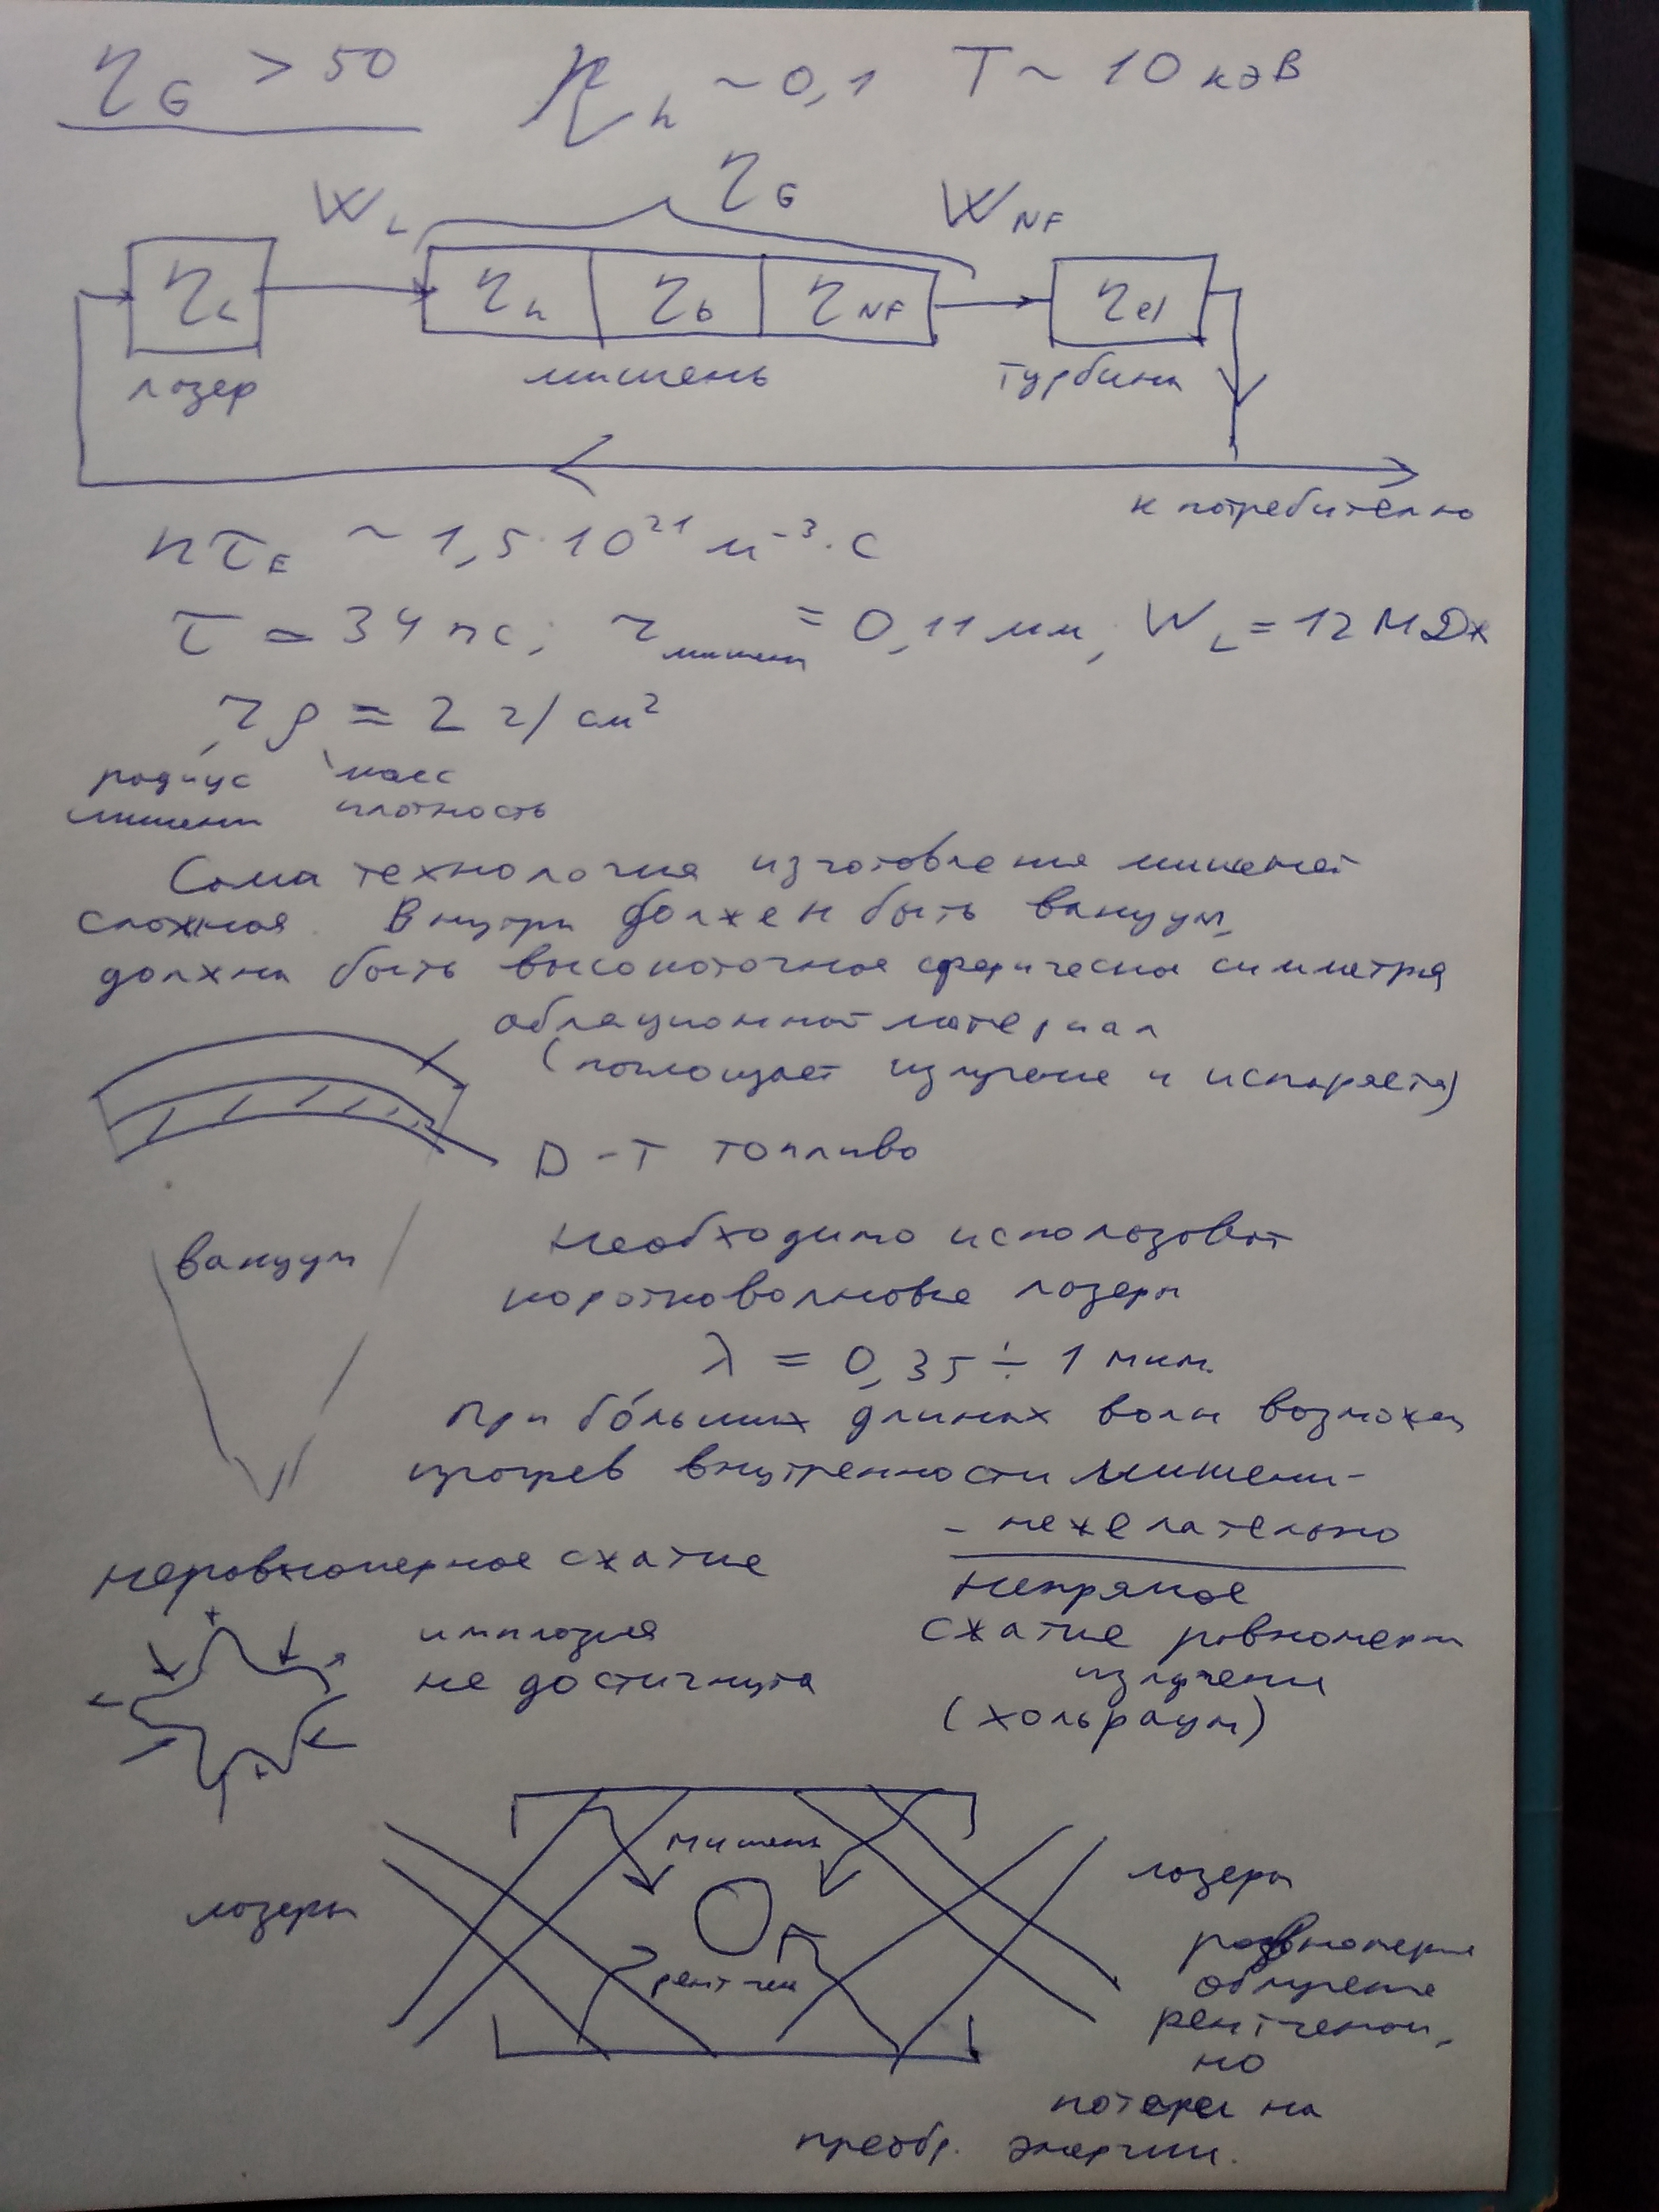 η_G > 50   η_h ~ 0,1   T ~ 10 кэВ
η_G
W_L   W_NF
η_L   η_h   η_b   η_NF   η_el
лазер   мишень   турбина
к потребителю
nτ_E ~ 1,5·10²¹ м⁻³·с
τ = 34 пс; r_мишени = 0,11 мм, W_L = 12 МДж
rρ = 2 г/см²
радиус   масс
мишени   плотность
Сама технология изготовления мишеней
сложная. Внутри должен быть вакуум,
должна быть высокоточная сферическая симметрия
абляционный материал
(поглощает излучение и испаряется)
D-T топливо
вакуум
Необходимо использовать
коротковолновые лазеры
λ = 0,35 ÷ 1 мкм.
При бо́льших длинах волн возможен
прогрев внутренности мишени -
- нежелательно
неравномерное сжатие
имплозия
не достигнута
непрямое
сжатие равномерн
излучени
(хольраум)
мишень
лазеры
лазеры
рентген
равномерное
облучение
рентгеном,
но
потери на
преобр. энергии.